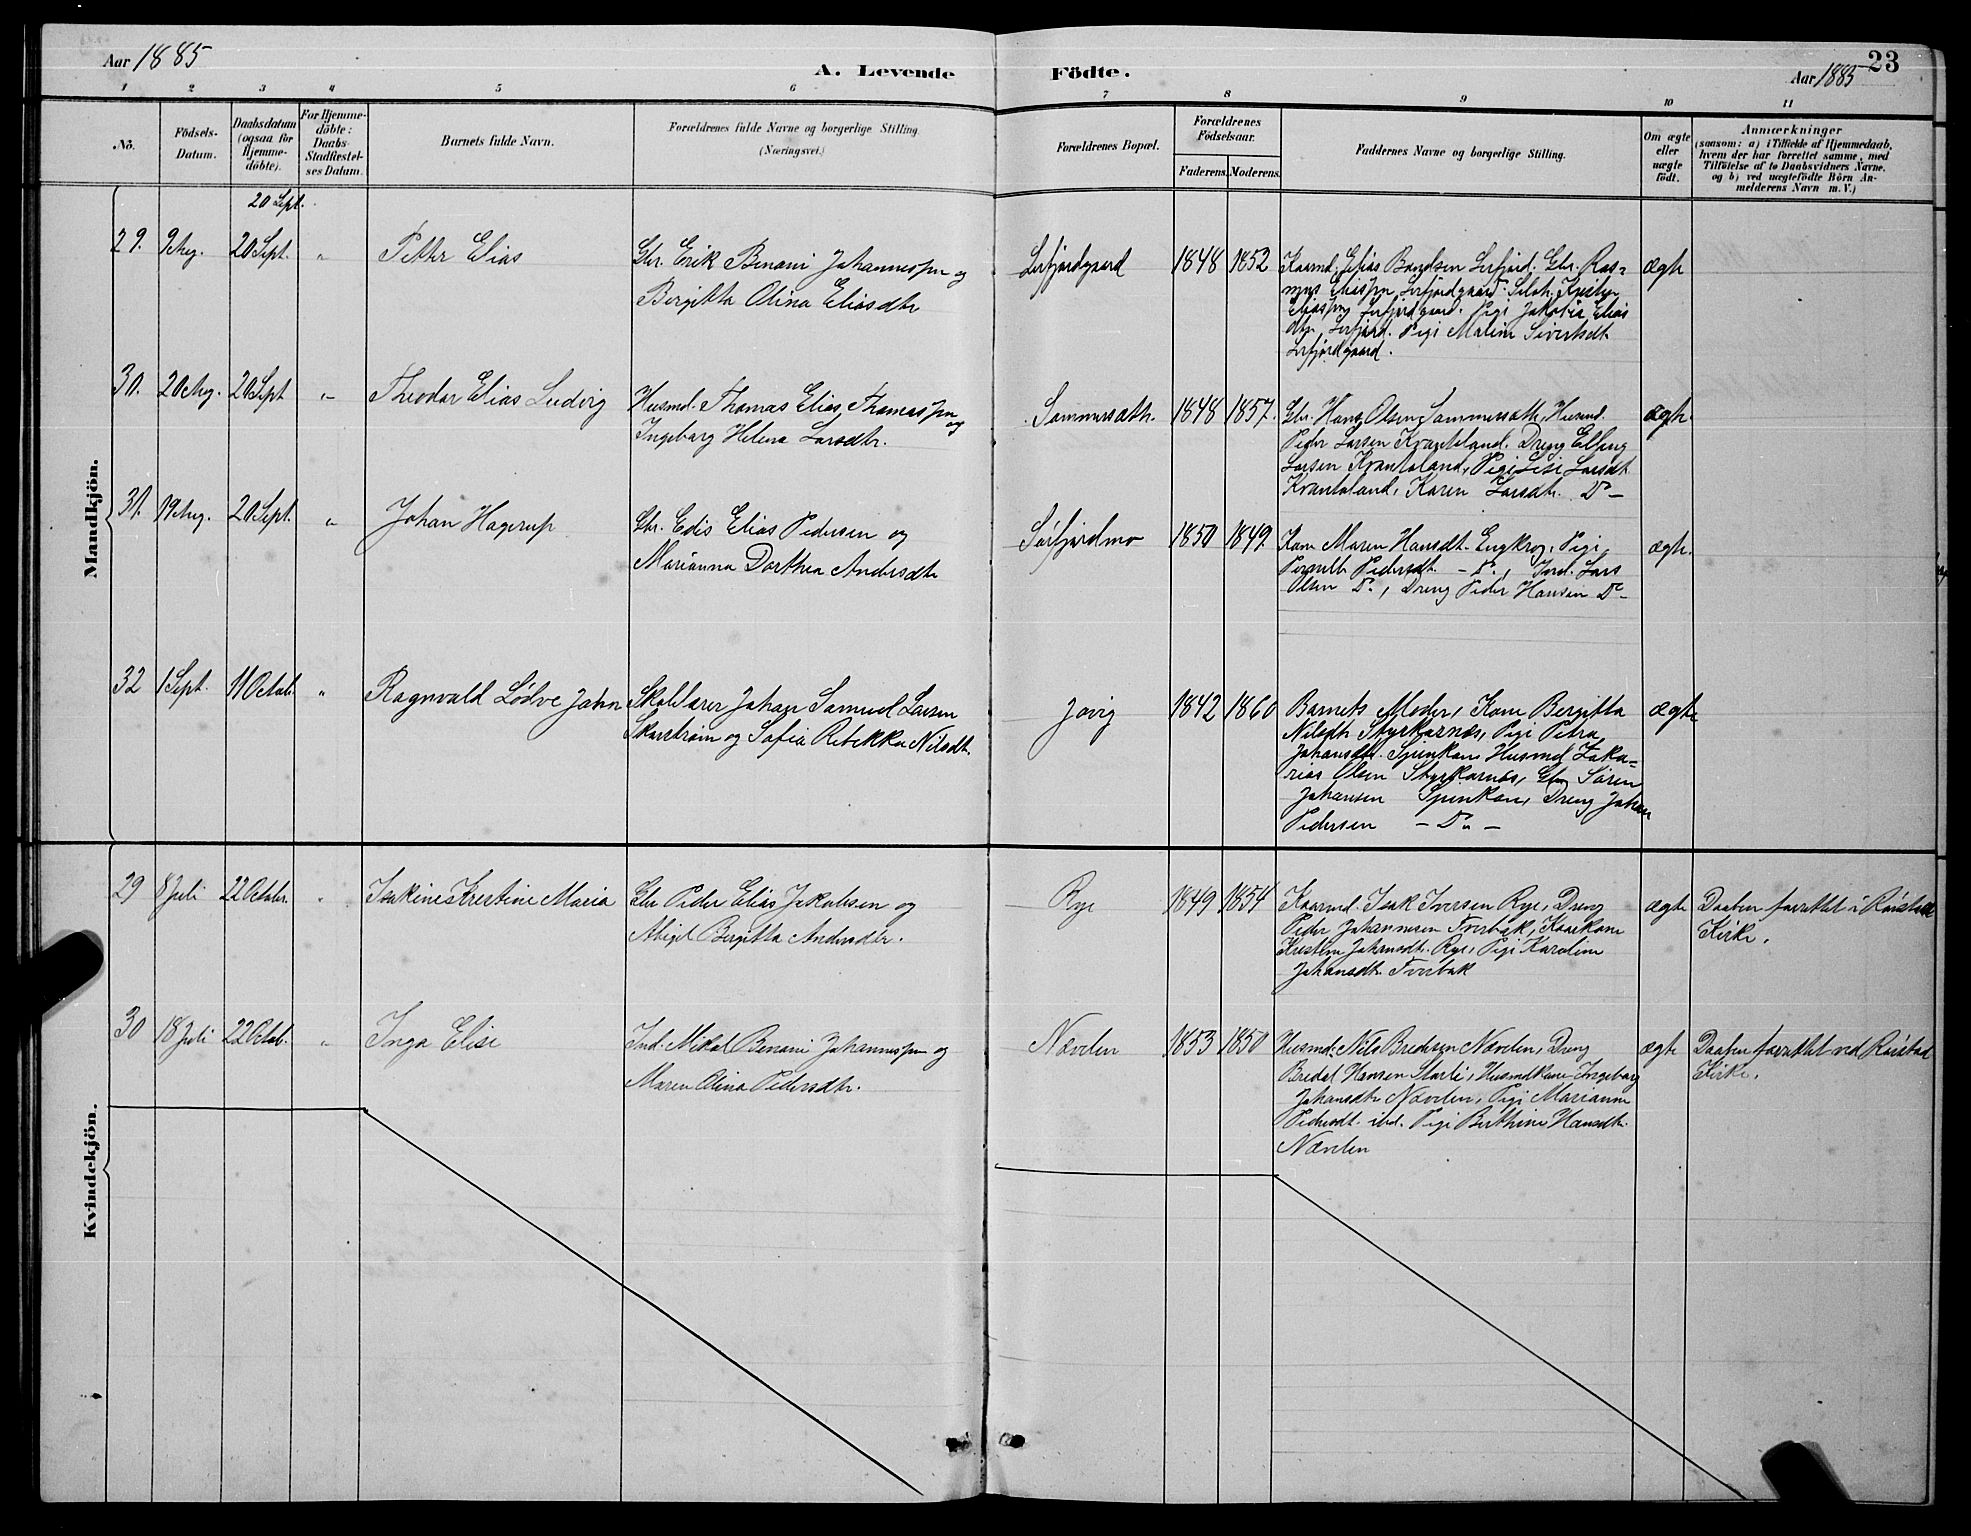 Aar 1885
A. Levende Födte.
Aar 1885
23
1 2 3 4 5 6 7 8 9 10 11
No.
Födsels-
Datum.
Daabsdatum
(ogsaa for
Hjemme-
döbte).
For Hjemme-
döbte:
Daabs-
Stadfæstel-
ses Datum.
Barnets fulde Navn.
Forældrenes fulde Navne og borgerlige Stilling.
(Næringsvei.)
Forældrenes Bopæl.
Forældrenes
Födselsaar.
Faderens. Moderens.
Faddernes Navne og borgerlige Stilling.
Om ægte
eller
uægte
födt.
Anmærkninger
(saasom: a) i Tilfælde af Hjemmedaab,
hvem der har forrettet samme, med
Tilföielse af to Daabsvidners Navne,
og b) ved uægtefödte Börn An-
melderens Navn m. V.)
Mandkjön.
20 Sept.
29. 9 Aug. 20 Sept. " Petter Elias
Gbr. Erik Benoni Johannessen og
Bergitta Olina Eliasdtr
Lerfjordgaard 1848 1852
Kaarmd. Elias Bendtsen Leirfjord. Gbr. Ras=
mus Eliassen Leirfjordgaard.
Eliassen Leirfjordgaard. Pigi Jakobia Elias
dtr. Leirfjord. Pigi Maline Sivertsdt.
Leirfjordgaard.
ægte
30. 20 Aug. 20 Sept " Theodor Elias Ludvig
Husmd. Thomas Elias Thomassen og
Ingeborg Helena Larsdtr.
Sommersæth. 1848 1857.
Gbr. Hans Olsen Sommersæth, Husmd.
Peder Larsen Kvanteland. Dreng
Larsen Kvantoland, Pigi Lise Larsdt
Kvantoland, Karen Larsdtr. Do –
ægte.
31. 19 Aug. 20 Sept. " Johan Hagerup
Gbr. Edis Elias Pedersen og
Marianna Dorthea Andersdtr
Sörfjordmo 1850 1849.
Kone Maren Hansdt. Engkrog, Pigi
Pernille Pedersdt. – Do., Ind. Lars
Olsen Do., Dreng Peder Hansen Do –
ægte.
32 1 Sept. 11 Octob. " Ragnvald Lödve John
Skolelærer Johan Samuel Larsen
Skarstrøm og Sofia Rebekka Nilsdt.
Jövig 1842 1860
Barnets Moder, Kone Bergitta
Nilsdtr Styrkarnæs, Pigi Petra
Johansdtr. Spinkan, Husmd Zaka=
rias Olsen Styrkarnæs, Gbr Sören
Johansen Spinkan, Dreng Johan
Pedersen – Do –
ægte
Kvindekjön.
29 8 Juli 22 October. " Isakine Krestine Maria
Gbr Peder Elias Jakobsen og
Abigel Bergitta Andersdtr.
Rye 1849 1854
Kaarmd. Isak Iversen Rye, Dreng
Peder Johannesen Tverbak, Kaarkone
Kirsten Johansdtr. Rye, Pigi Karoline
Johansdtr. Tverbak
ægte
Daaben forrettet i Röistad
Kirke.
30 18 Juli 22 Octob. " Inga Elise
Ind. Mikal Benoni Johannessen og
Maren Olina Pedersdtr.
Nævelen 1853 1850
Husmd. Nils Bredesen Nævelen, Dreng
Bredal Hansen Storli, Husmdkone Ingeborg
Johansdtr Nævelen, Pigi Marianne
Pedersdt. ibd. Pigi Berthine Hansdtr.
Nævelen
ægte
Daaben forrettet ved Röistad
Kirke.